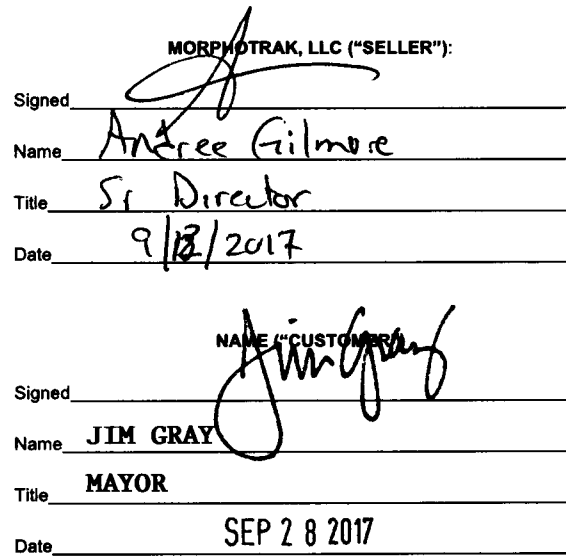 MORPHOTRAK, LLC ("SELLER"):
Signed
Name Andree Gilmore
Title Sr Director
Date 9/ /2017
NAME ("CUSTOMER")
Jim Gray
Signed
Name JIM GRAY
Title MAYOR
Date SEP 28 2017